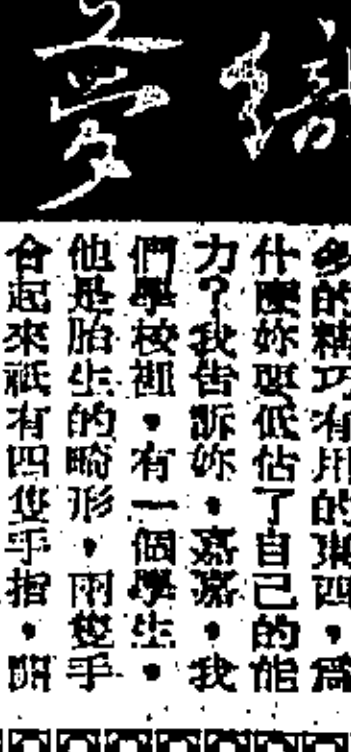 夢
多的精巧有用的東西，爲
什麼妳要低估了自己的能
力？我告訴妳，嘉嘉，我
們學校裡，有一個學生，
他是胎生的畸形，兩隻手
合起來祇有四隻手指，開